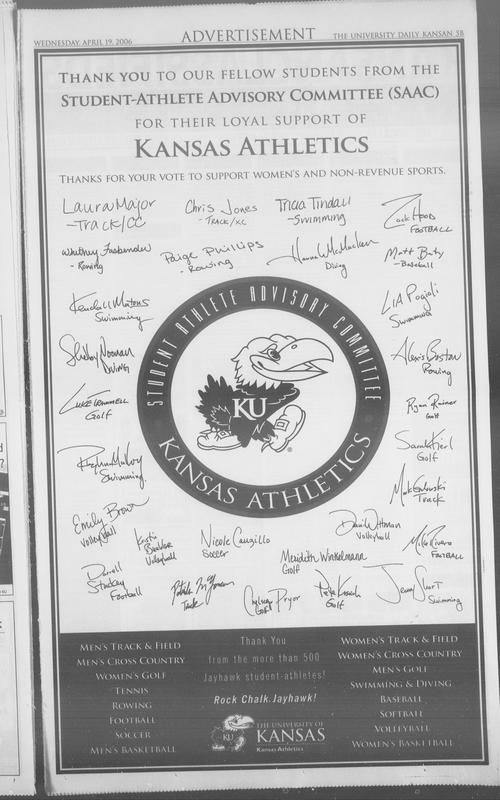 WEDNESDAY, APRIL 19, 2006
ADVERTISEMENT
THE UNIVERSITY DAILY KANSAN 5B
THANK YOU TO OUR FELLOW STUDENTS FROM THE
STUDENT-ATHLETE ADVISORY COMMITTEE (SAAC)
FOR THEIR LOYAL SUPPORT OF
KANSAS ATHLETICS
THANKS FOR YOUR VOTE TO SUPPORT WOMEN'S AND NON-REVENUE SPORTS.
Laura Major
-Track/CC
Chris Jones
-Track/XC
Tricia Tindall
-Swimming
Zach
FOOTBALL
Whitney
-Rowing
Paige Phillips
-Rowing
Diving
Matt
-Baseball
Kendall
Swimming
Swimming
Shelby Noonan
DIVING
Alexis Boston
Rowing
Luke
Golf
Ryan Rainer
Golf
Swimming
Golf
Track
Emily Brown
Volleyball
Volleyball
Nicole Cauzillo
Soccer
Volleyball
Meridith Winkelmann
Golf
FOOTBALL
Darrell
Stuckey
Football
Track
Chelsey Pryor
Golf
Pete
Golf
Jenny Short
Swimming
STUDENT ATHLETE ADVISORY COMMITTEE
KU
KANSAS ATHLETICS
MEN'S TRACK & FIELD
MEN'S CROSS COUNTRY
WOMEN'S GOLF
TENNIS
ROWING
FOOTBALL
SOCCER
MEN'S BASKETBALL
Thank You
from the more than 500
Jayhawk student-athletes!
Rock Chalk, Jayhawk!
KU
THE UNIVERSITY OF
KANSAS
Kansas Athletics
WOMEN'S TRACK & FIELD
WOMEN'S CROSS COUNTRY
MEN'S GOLF
SWIMMING & DIVING
BASEBALL
SOFTBALL
VOLLEYBALL
WOMEN'S BASKETBALL